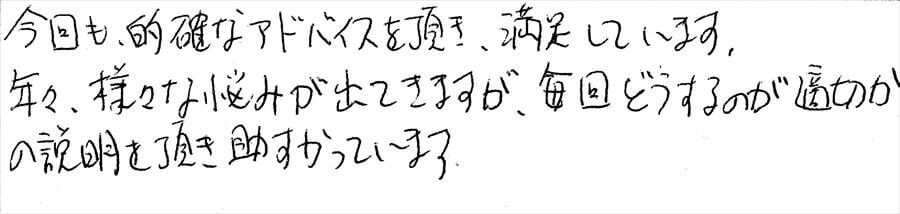 今回も、的確なアドバイスを頂き、満足しています。
年々、様々な悩みが出てきますが、毎回どうするのが適切か
の説明を頂き助すかっています。